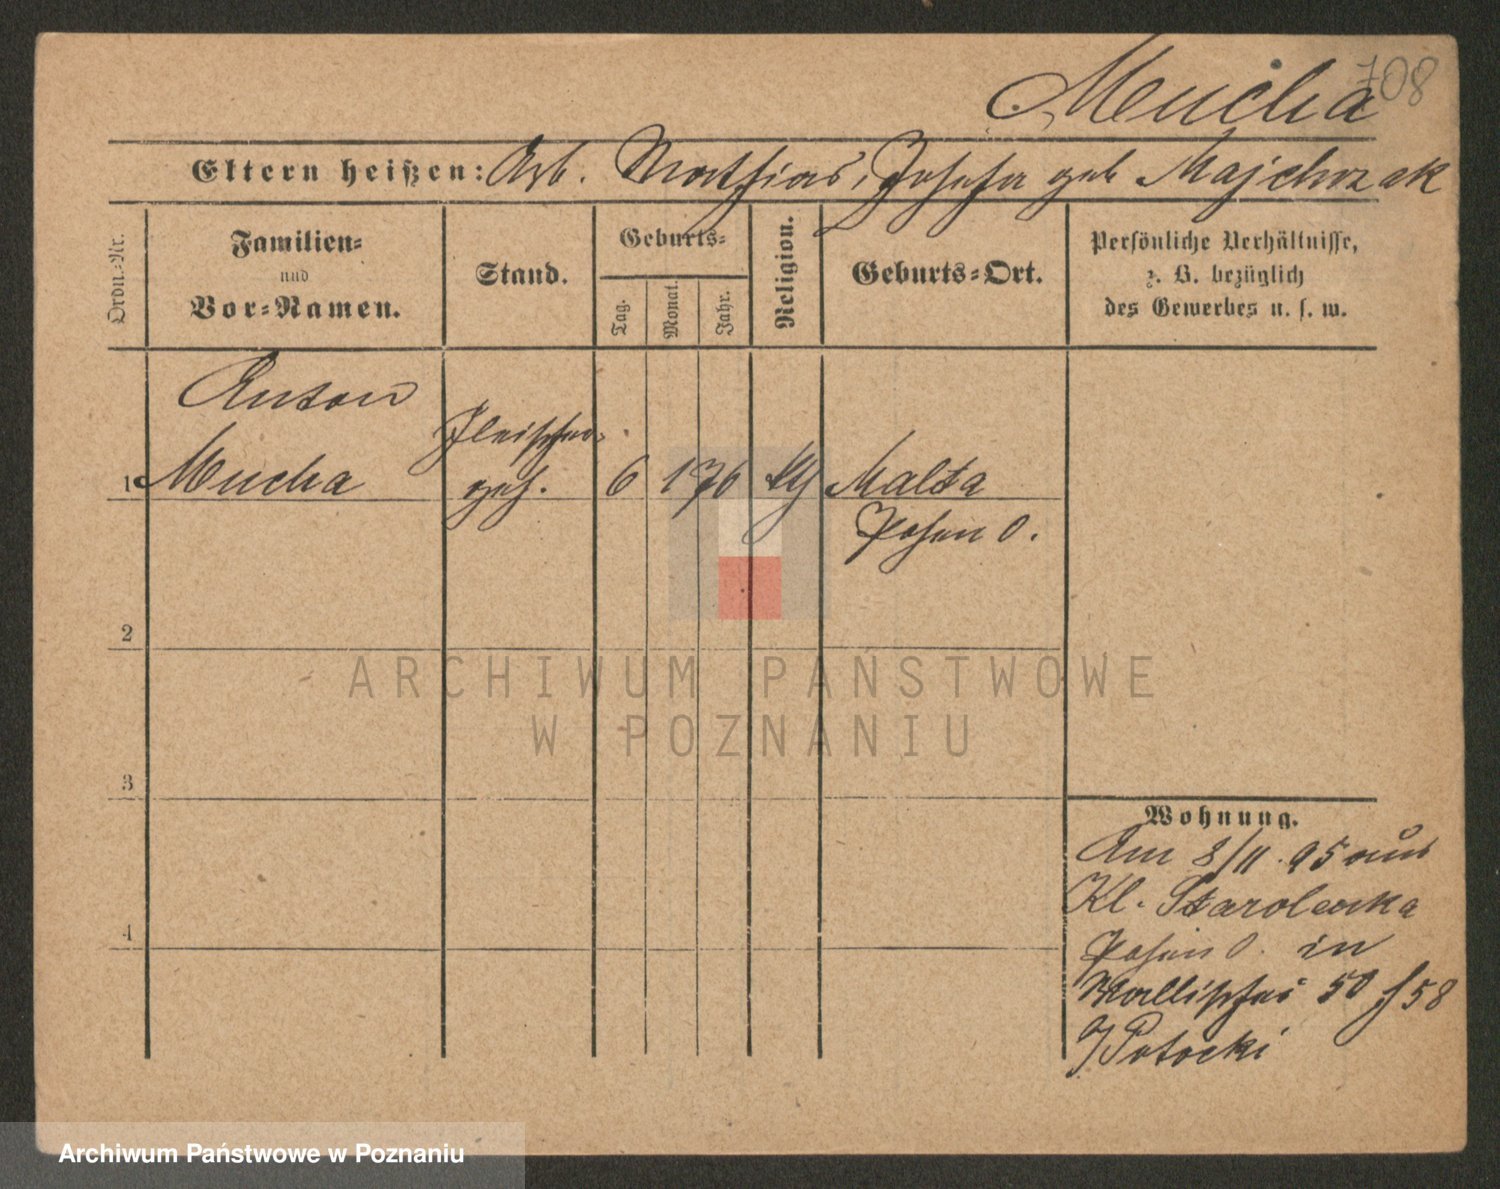 708
Mucha
Eltern heißen: Arb. Mathias, Josefa geb Majchrzak
Ordn.-Nr.
Familien-
und
Vor-Namen.
Stand.
Geburts-
Tag.
Monat.
Jahr.
Religion.
Geburts-Ort.
Persönliche Verhältnisse,
z. B. bezüglich
des Gewerbes u. s. w.
Anton
Fleischer-
1 Mucha geh. 6 1 76 Malta
Posen O.
2
3
4
ARCHIWUM PAŃSTWOWE
W POZNANIU
Wohnung.
Am 8/11. 95 aus
Kl. Starolenka
Posen O. in
Wallischei 50 f 58
Potocki
Archiwum Państwowe w Poznaniu